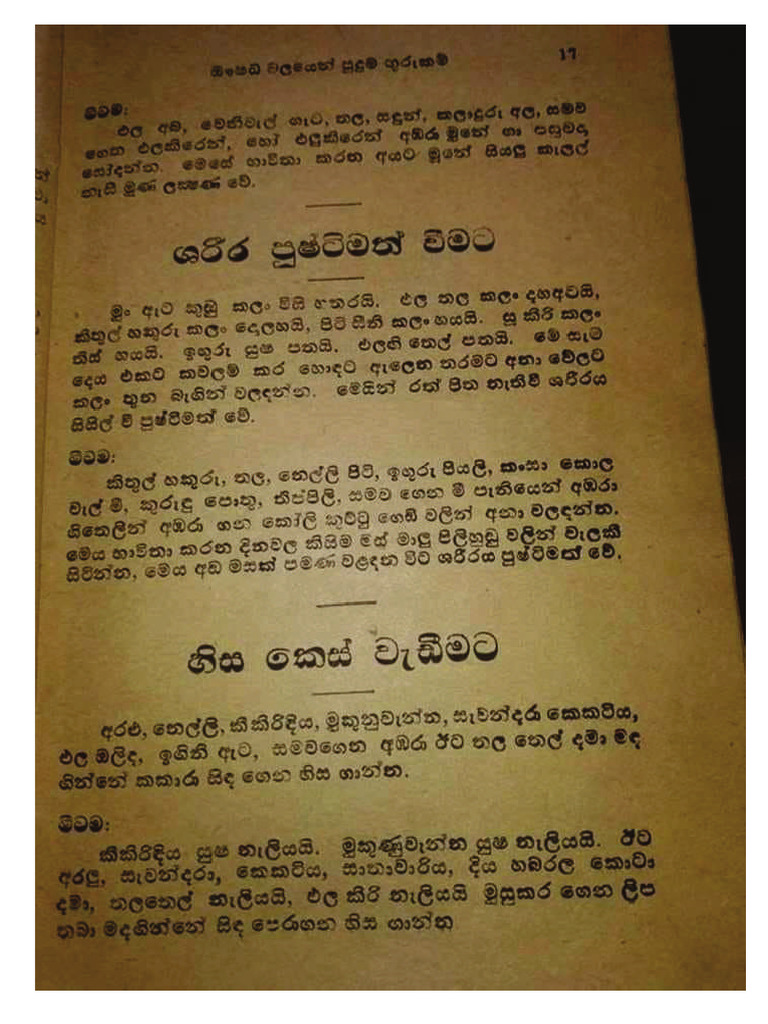 ඖෂධ වලමයන් පුදුම ගුරුකම් 17
මීටම:
එල අබ, වෙනිවැල් ගැට, තල, සඳුන්, කලාඳුරු අල, සමව
ගෙන එලකිරෙන්, හෝ එලුකිරෙන් අඹරා මූනේ ගා පසුවදා
සෝදන්න. මෙසේ භාවිතා කරන අයට මූනේ සියලු කැලල්
නැසී මූණ ලක්ෂණ වේ.
ශරීර පුෂ්ටිමත් වීමට
මුං ඇට කුඩු කලං විසි හතරයි. එල තල කලං දහඅටයි,
කිතුල් හකුරු කලං දොලහයි, පිටි සීනි කලං හයයි. සූ කිරි කලං
තිස් හයයි. ඉගුරු යුෂ පතයි. එලඟි තෙල් පතයි. මේ සැට
දෙය එකට කවලම් කර හොඳට ඇලෙන තරමට අනා වේලට
කලං තුන බැගින් වලඳන්න. මෙයින් රත් පිත නැතිවී ශරීරය
සිසිල් වී පුෂ්ටිමත් වේ.
මීටම:
කිතුල් හකුරු, තල, නෙල්ලි පිටි, ඉගුරු පියලි, කංසා කොල
වැල් මී, කුරුඳු පොතු, තිප්පිලි, සමව ගෙන මී පැනියෙන් අඹරා
ගිතෙලින් අඹරා ගන කෝලි කුට්ටු ගෙඩි වලින් අනා වලඳන්න.
මෙය භාවිතා කරන දිනවල කිසිම මස් මාලු පිලිහුඩු වලින් වැලකී
සිටින්න, මෙය අඩ මසක් පමණ වළඳන විට ශරීරය පුෂ්ටිමත් වේ.
හිස කෙස් වැඩීමට
අරළු, නෙල්ලි, කීකිරිඳිය, මුකුනුවැන්න, සැවන්දරා කෙකටිය,
එල ඔලිඳ, ඉගිනි ඇට, සමවගෙන අඹරා ඊට තල තෙල් දමා මඳ
ගින්නේ කකාරා සිඳ ගෙන හිස ගාන්න.
මීටම:
කීකිරිඳිය යුෂ නැලියයි. මුකුණුවැන්න යුෂ නැලියයි. ඊට
අරලු, සැවන්දරා, කෙකටිය, සාතාවාරිය, දිය හබරල කොටා
දමා, තලතෙල් නැලියයි, එල කිරි නැලියයි මුසුකර ගෙන ලිප
තබා මදගින්නේ සිඳ පෙරාගන හිස ගාන්න